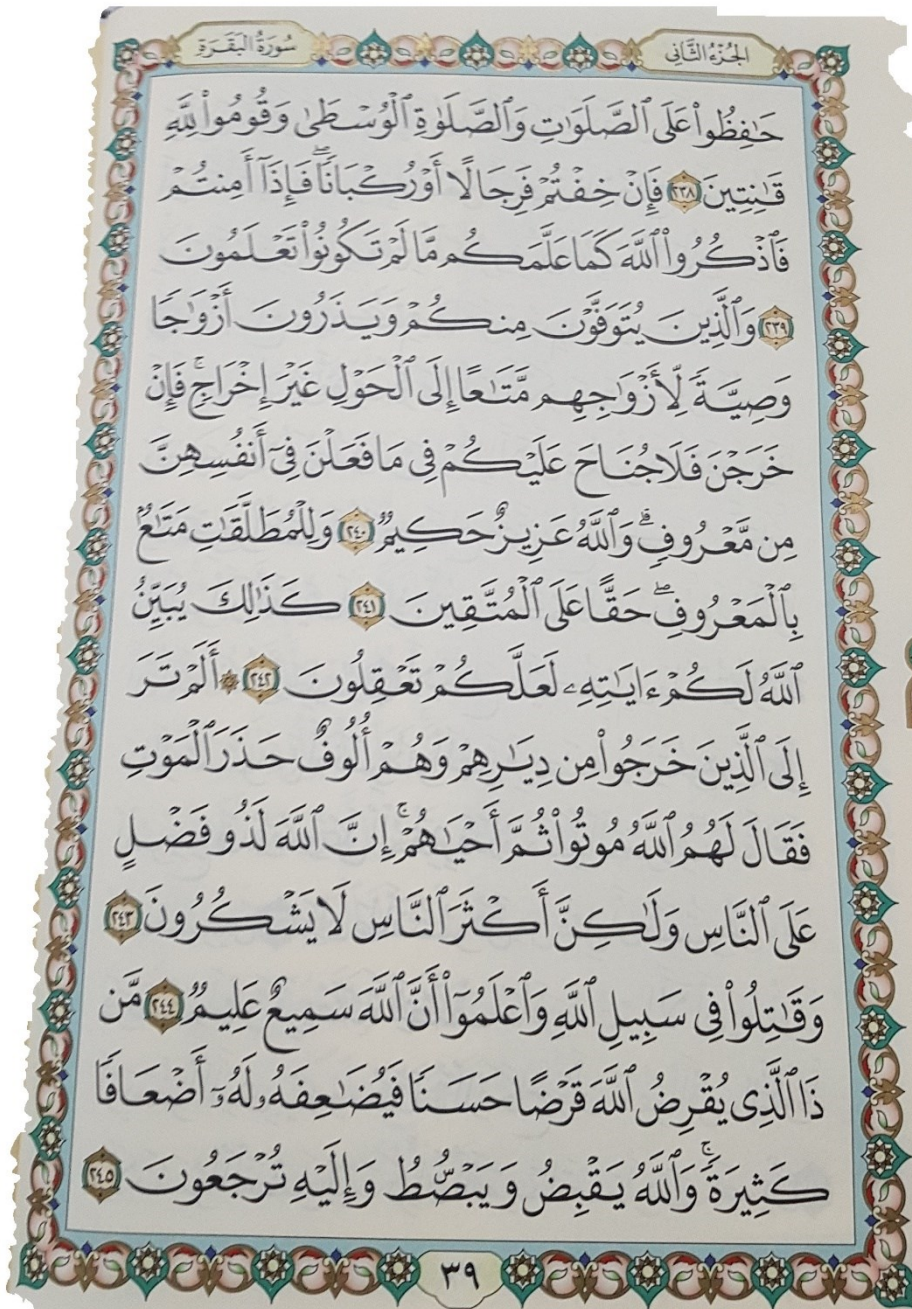 الجُزْءُ الثَّانِي
سُورَةُ البَقَرَةِ
حَٰفِظُوا۟ عَلَى ٱلصَّلَوَٰتِ وَٱلصَّلَوٰةِ ٱلْوُسْطَىٰ وَقُومُوا۟ لِلَّهِ
قَٰنِتِينَ ٢٣٨ فَإِنْ خِفْتُمْ فَرِجَالًا أَوْ رُكْبَانًاۖ فَإِذَآ أَمِنتُمْ
فَٱذْكُرُوا۟ ٱللَّهَ كَمَا عَلَّمَكُم مَّا لَمْ تَكُونُوا۟ تَعْلَمُونَ
٢٣٩ وَٱلَّذِينَ يُتَوَفَّوْنَ مِنكُمْ وَيَذَرُونَ أَزْوَٰجًا
وَصِيَّةً لِّأَزْوَٰجِهِم مَّتَٰعًا إِلَى ٱلْحَوْلِ غَيْرَ إِخْرَاجٍۚ فَإِنْ
خَرَجْنَ فَلَا جُنَاحَ عَلَيْكُمْ فِى مَا فَعَلْنَ فِىٓ أَنفُسِهِنَّ
مِن مَّعْرُوفٍۗ وَٱللَّهُ عَزِيزٌ حَكِيمٌ ٢٤٠ وَلِلْمُطَلَّقَٰتِ مَتَٰعٌۢ
بِٱلْمَعْرُوفِۖ حَقًّا عَلَى ٱلْمُتَّقِينَ ٢٤١ كَذَٰلِكَ يُبَيِّنُ
ٱللَّهُ لَكُمْ ءَايَٰتِهِۦ لَعَلَّكُمْ تَعْقِلُونَ ٢٤٢ ۞ أَلَمْ تَرَ
إِلَى ٱلَّذِينَ خَرَجُوا۟ مِن دِيَٰرِهِمْ وَهُمْ أُلُوفٌ حَذَرَ ٱلْمَوْتِ
فَقَالَ لَهُمُ ٱللَّهُ مُوتُوا۟ ثُمَّ أَحْيَٰهُمْۚ إِنَّ ٱللَّهَ لَذُو فَضْلٍ
عَلَى ٱلنَّاسِ وَلَٰكِنَّ أَكْثَرَ ٱلنَّاسِ لَا يَشْكُرُونَ ٢٤٣
وَقَٰتِلُوا۟ فِى سَبِيلِ ٱللَّهِ وَٱعْلَمُوٓا۟ أَنَّ ٱللَّهَ سَمِيعٌ عَلِيمٌ ٢٤٤ مَّن
ذَا ٱلَّذِى يُقْرِضُ ٱللَّهَ قَرْضًا حَسَنًا فَيُضَٰعِفَهُۥ لَهُۥٓ أَضْعَافًا
كَثِيرَةًۚ وَٱللَّهُ يَقْبِضُ وَيَبْصُۜطُ وَإِلَيْهِ تُرْجَعُونَ ٢٤٥
٣٩